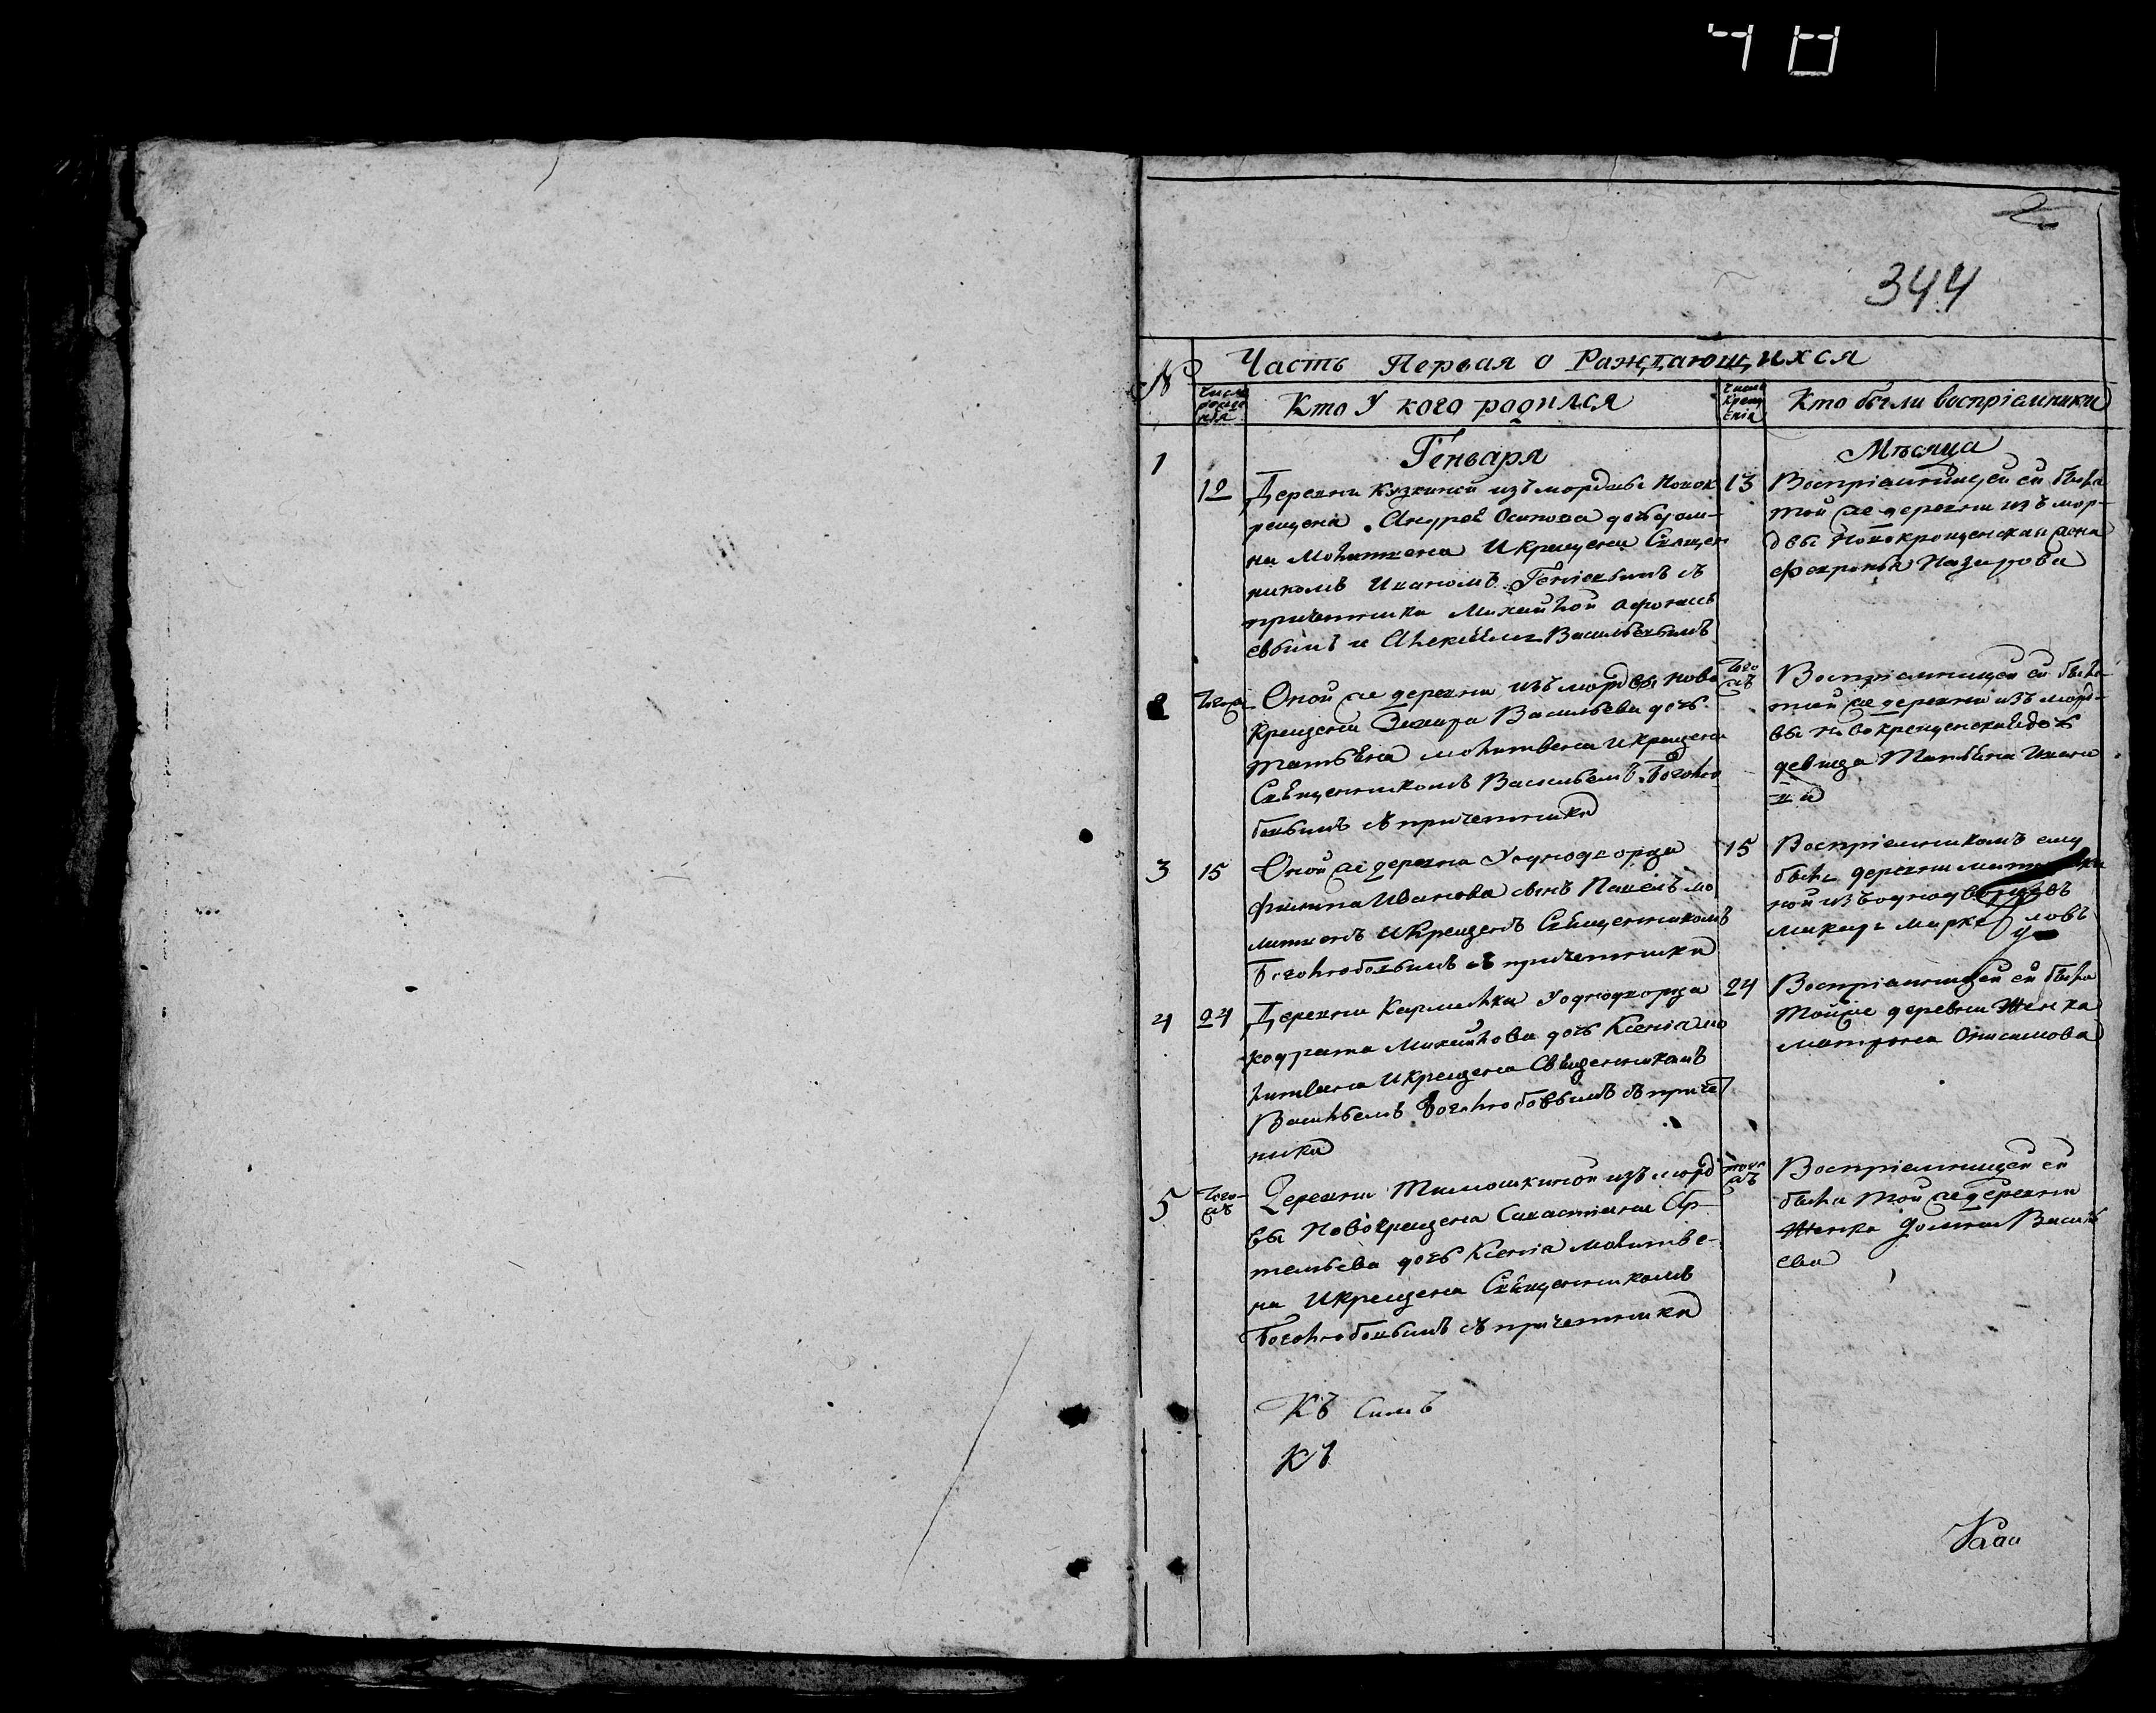 40
2
344
Часть Первая о Раждающихся
№
Числ рожде нiя
Кто У кого родился
Числ Крещ Енiя
Кто были восприемники
Генваря
Мѣсяца
1
10
Деревни Кузкиной изъ мордвы Новок
рещена Андрея Осипова дочь дом-
на Молитвена Икрещена Священ
никомъ Иваномъ съ
причетники Михайлой Афонась
евымъ и Алексѣемъ Васильевымъ
13
Воспрiемницей ей была
той же деревни изъ мор-
двы Новокрещенская жена
Феврония Назарова
2
Тогож
Оной же деревни изъ мордвы ново
крещена Захара Васильева дочь
татьѣна молитвена икрещена
Свѣщенникомъ Васильемъ Боголю
бовымъ съ причетники
Того жъ
Воспрiемницей ей была
той же деревни изъ морд-
вы новокрещенская дочь
девица Татьѣна Ивано
ва
3
15
Оной же деревни Уоднодворца
филипа Иванова сынъ Павелъ мо
литвенъ Икрещенъ Свѣщенникомъ
Боголюбовымъ съ причетники
15
Воспрiемникомъ ему
былъ деревни
ной изъ однодворцовъ
макаръ
4
24
Деревни Кармалки Уоднодворца
кодрата Михайлова дочь Ксенiя мо
литвена Икрещена Свѣщенникомъ
Васильемъ Боголюбовымъ съ приче
ники
24
Воспрiемницей ей была
Тойже деревни Женка
матрона Онисимова
5
Того-жъ
Деревни Тимошкиной изъ морд
вы Новокрещена Савастиана Ар-
темьева дочь Ксенiя молитве-
на Икрещена Свѣщенникомъ
Боголюбовымъ съ причетники
того жъ
Воспрiемницей ей
была Той же деревни
Женка Домна Василь
ева
Къ Симъ
Къ